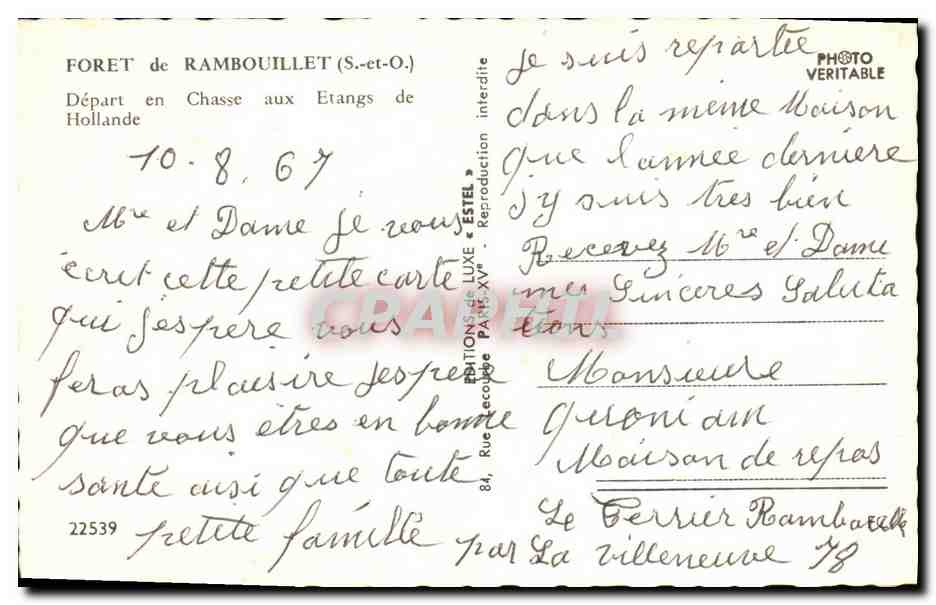 FORET de RAMBOUILLET (S.-et-O.)
Départ en Chasse aux Etangs de
Hollande
10-8.67
Mre et Dame je vous
écrit cette petite carte
qui j'espere vous
feras plaisire jespere
que vous êtres en bonne
sante aisi que toute
petite famille
22539
EDITIONS de LUXE « ESTEL »
84, Rue Lecourbe PARIS-XVe - Reproduction interdite
PHOTO
VERITABLE
je suis repartie
dans la même Maison
que l'année derniere
j'y suis tres bien
Recevez Mre et Dame
mes Sinceres Saluta
tions
Monsieure
Maison de repos
Le Perrier
par La villeneuve 78
CRAPHIT